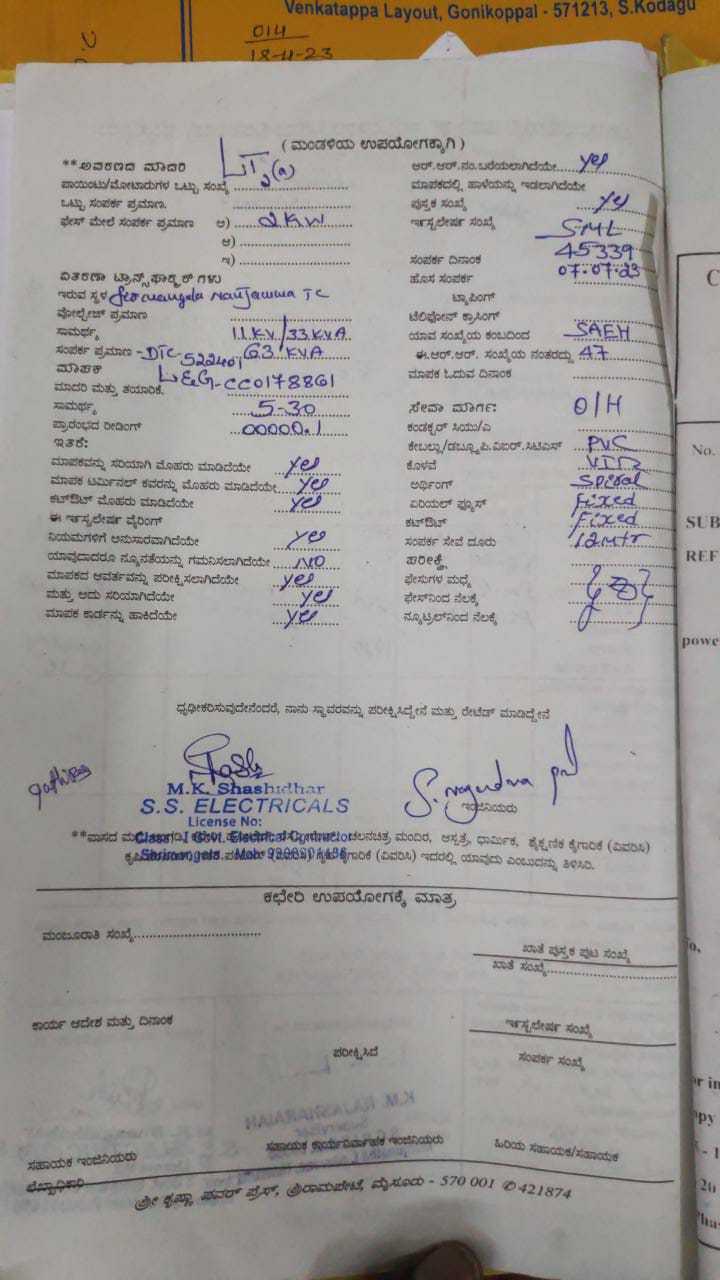 Venkatappa Layout, Gonikoppal - 571213, S.Kodagu
014
18-4-23
( ಮಂಡಳಿಯ ಉಪಯೋಗಕ್ಕಾಗಿ )
**ಅವಕರಣದ ಮಾದರಿ LT2(a)
ಪಾಯಿಂಟು/ಮೋಟಾರುಗಳ ಒಟ್ಟು ಸಂಖ್ಯೆ
ಒಟ್ಟು ಸಂಪರ್ಕ ಪ್ರಮಾಣ.
ಫೇಸ್ ಮೇಲೆ ಸಂಪರ್ಕ ಪ್ರಮಾಣ ಅ) 2KW
ಆ)
ಇ)
ವಿತರಣಾ ಟ್ರಾನ್ಸ್‌ಫಾರ್ಮರ್ ಗಳು
ಇರುವ ಸ್ಥಳ Nanjamma TC
ವೋಲ್ಟೇಜ್ ಪ್ರಮಾಣ
ಸಾಮರ್ಥ್ಯ 11KV/33KVA
ಸಂಪರ್ಕ ಪ್ರಮಾಣ - DTC-522401 63 KVA
ಮಾಪಕ
ಮಾದರಿ ಮತ್ತು ತಯಾರಿಕೆ. L&G-CC0178861
ಸಾಮರ್ಥ್ಯ 5-30
ಪ್ರಾರಂಭದ ರೀಡಿಂಗ್ 00000.1
ಇತರೆ:
ಮಾಪಕವನ್ನು ಸರಿಯಾಗಿ ಮೊಹರು ಮಾಡಿದೆಯೇ yes
ಮಾಪಕ ಟರ್ಮಿನಲ್ ಕವರನ್ನು ಮೊಹರು ಮಾಡಿದೆಯೇ yes
ಕಟ್‌ಔಟ್ ಮೊಹರು ಮಾಡಿದೆಯೇ yes
ಈ ಇನ್ಸ್ಟಲೇಷನ್ ವೈರಿಂಗ್
ನಿಯಮಗಳಿಗೆ ಅನುಸಾರವಾಗಿದೆಯೇ yes
ಯಾವುದಾದರೂ ನ್ಯೂನತೆಯನ್ನು ಗಮನಿಸಲಾಗಿದೆಯೇ NO
ಮಾಪಕದ ಆವರ್ತವನ್ನು ಪರೀಕ್ಷಿಸಲಾಗಿದೆಯೇ yes
ಮತ್ತು ಅದು ಸರಿಯಾಗಿದೆಯೇ yes
ಮಾಪಕ ಕಾರ್ಡನ್ನು ಹಾಕಿದೆಯೇ yes
ಆರ್.ಆರ್.ನಂ.ಬರೆಯಲಾಗಿದೆಯೇ yes
ಮಾಪಕದಲ್ಲಿ ಹಾಳೆಯನ್ನು ಇಡಲಾಗಿದೆಯೇ
ಪುಸ್ತಕ ಸಂಖ್ಯೆ yes
ಇನ್ಸ್ಟಲೇಷನ್ ಸಂಖ್ಯೆ SML
45339
ಸಂಪರ್ಕ ದಿನಾಂಕ 07.07.23
ಹೊಸ ಸಂಪರ್ಕ
ಟ್ಯಾಪಿಂಗ್
ಟೆಲಿಫೋನ್ ಕ್ರಾಸಿಂಗ್
ಯಾವ ಸಂಖ್ಯೆಯ ಕಂಬದಿಂದ SAEH
ಈ.ಆರ್.ಆರ್. ಸಂಖ್ಯೆಯ ನಂತರದ್ದು 47
ಮಾಪಕ ಓದುವ ದಿನಾಂಕ
ಸೇವಾ ಮಾರ್ಗ: O/H
ಕಂಡಕ್ಟರ್ ಸಿಯು/ಎ
ಕೇಬಲ್ಲು/ಡಬ್ಲ್ಯೂಪಿ.ವಿಐರ್.ಸಿಟಿಎಸ್ PVC
ಕೊಳವೆ VIR
ಅರ್ಥಿಂಗ್ Spiral
ಏರಿಯಲ್ ಫ್ಯೂಸ್ Fixed
ಕಟ್‌ಔಟ್ Fixed
ಸಂಪರ್ಕ ಸೇವೆ ದೂರು 12Mtr
ಪರೀಕ್ಷೆ
ಫೇಸುಗಳ ಮಧ್ಯೆ
ಫೇಸ್‌ನಿಂದ ನೆಲಕ್ಕೆ
ನ್ಯೂಟ್ರಲ್‌ನಿಂದ ನೆಲಕ್ಕೆ
ಧೃಢೀಕರಿಸುವುದೇನೆಂದರೆ, ನಾನು ಸ್ಥಾವರವನ್ನು ಪರೀಕ್ಷಿಸಿದ್ದೇನೆ ಮತ್ತು ರೇಟೆಡ್ ಮಾಡಿದ್ದೇನೆ
M.K. Shashidhar
S.S. ELECTRICALS
License No:
Class - I Govt. Electrical Contractor
ಇಂಜಿನಿಯರು
ಚಲನಚಿತ್ರ ಮಂದಿರ, ಆಸ್ಪತ್ರೆ, ಧಾರ್ಮಿಕ, ಶೈಕ್ಷಣಿಕ ಕೈಗಾರಿಕೆ (ವಿವರಿಸಿ)
ಕೈಗಾರಿಕೆ (ವಿವರಿಸಿ) ಇದರಲ್ಲಿ ಯಾವುದು ಎಂಬುದನ್ನು ತಿಳಿಸಿರಿ.
ಕಛೇರಿ ಉಪಯೋಗಕ್ಕೆ ಮಾತ್ರ
ಮಂಜೂರಾತಿ ಸಂಖ್ಯೆ
ಖಾತೆ ಪುಸ್ತಕ ಪುಟ ಸಂಖ್ಯೆ
ಖಾತೆ ಸಂಖ್ಯೆ
ಕಾರ್ಯ ಆದೇಶ ಮತ್ತು ದಿನಾಂಕ
ಇನ್ಸ್ಟಲೇಷನ್ ಸಂಖ್ಯೆ
ಪರೀಕ್ಷಿಸಿದೆ
ಸಂಪರ್ಕ ಸಂಖ್ಯೆ
ಸಹಾಯಕ ಇಂಜಿನಿಯರು
ಸಹಾಯಕ ಕಾರ್ಯನಿರ್ವಾಹಕ ಇಂಜಿನಿಯರು
ಹಿರಿಯ ಸಹಾಯಕ/ಸಹಾಯಕ
ಲೆಖ್ಖಾಧಿಕಾರಿ
ಶ್ರೀ ಕೃಷ್ಣಾ ಪವರ್ ಪ್ರೆಸ್, ಶ್ರೀರಾಮಪೇಟೆ, ಮೈಸೂರು - 570 001 ✆ 421874
No.
SUB
REF
powe